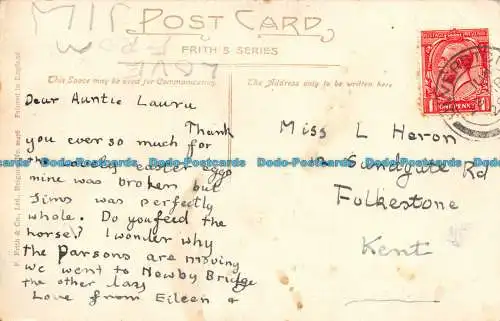 MIT
POST CARD
FROM
FRITH'S SERIES
LOVE
This Space may be used for Communication
The Address only to be written here
POSTAGE REVENUE
ONE PENNY
Printed in England
F. Frith & Co., Ltd., Reigate
Dear Auntie Laura
Thank
you ever so much for
the lovely easter eggs
mine was broken but
Jims was perfectly
whole. Do you feed the
horse? I wonder why
the Parsons are moving
we went to Newby Bridge
the other day
Love from Eileen &
Miss L Heron
Sandgate Rd
Folkestone
Kent
Dodo-Postcards Dodo-Postcards Dodo-Postcards Dodo-Postcards Dodo-Postcards